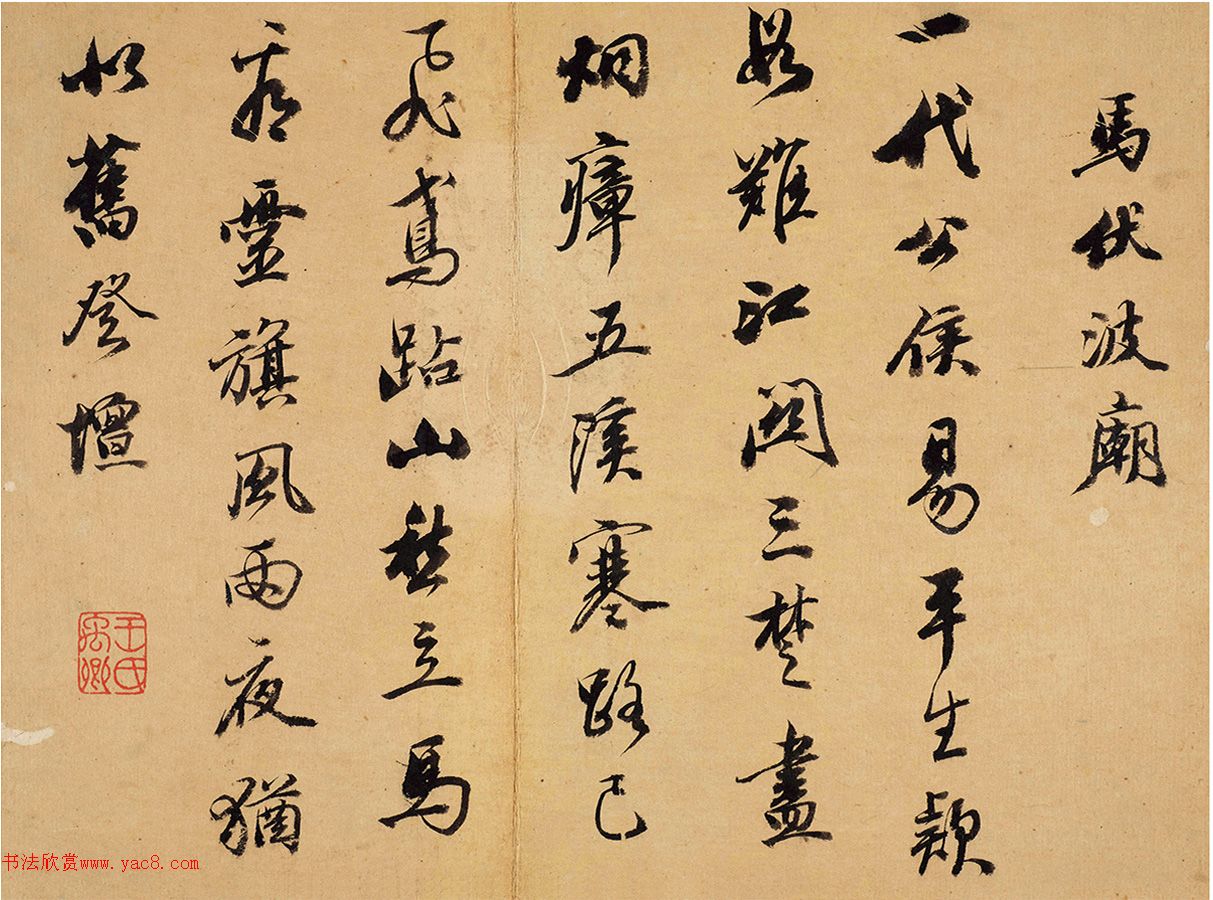 馬伏波廟
一代公侯易平生欵
段難江関三楚盡
烟瘴五溪寒路已
飛鳶跕山愁立馬
看靈旗風雨夜猶
似舊登壇
王氏禹卿
书法欣赏www.yac8.com